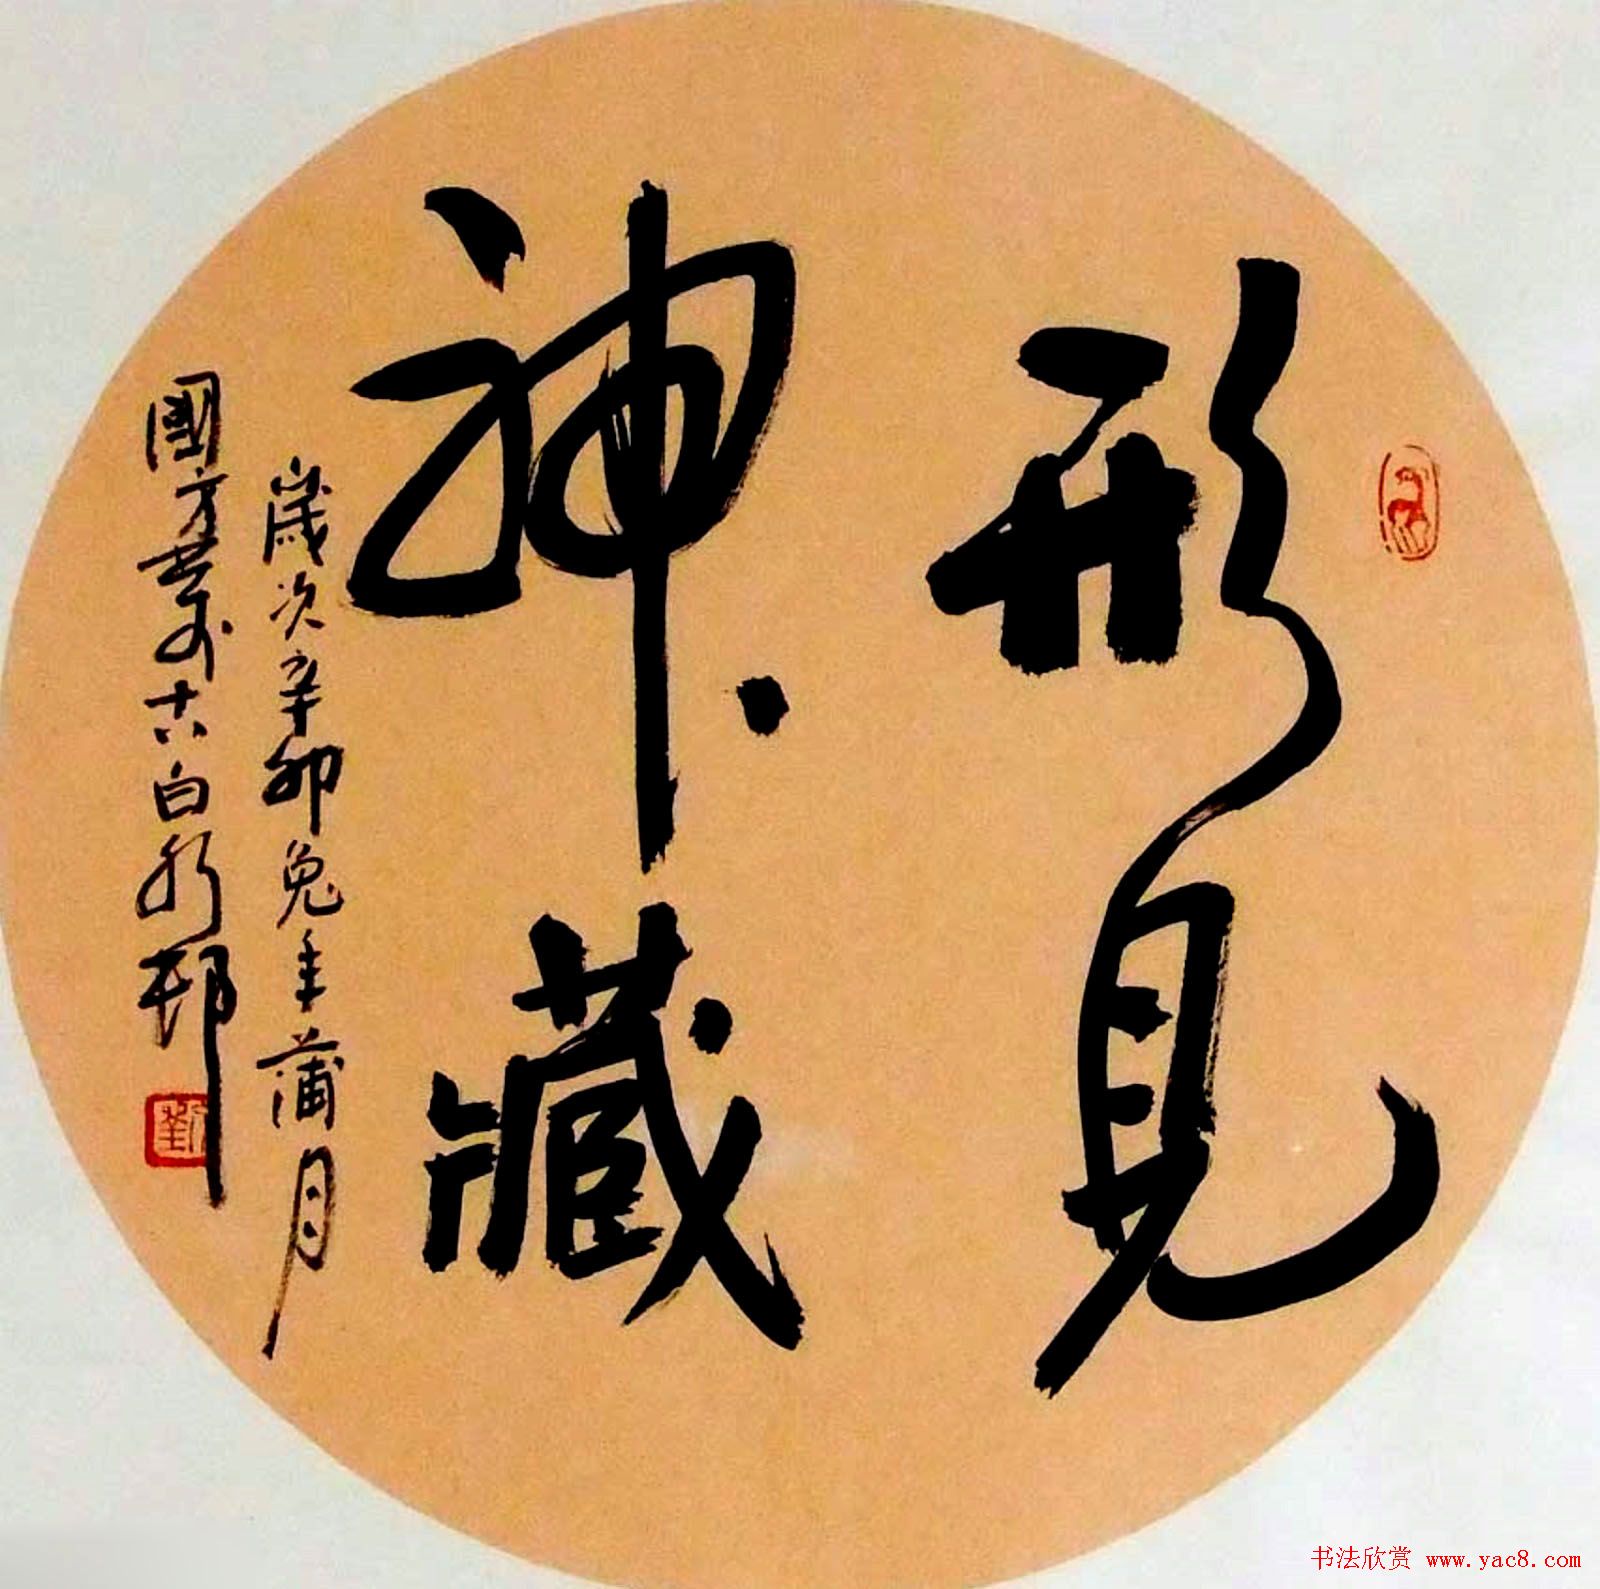 形見
神藏
歲次辛卯兔年蒲月
國方書於十六白於邨
劉
书法欣赏 www.yac8.com